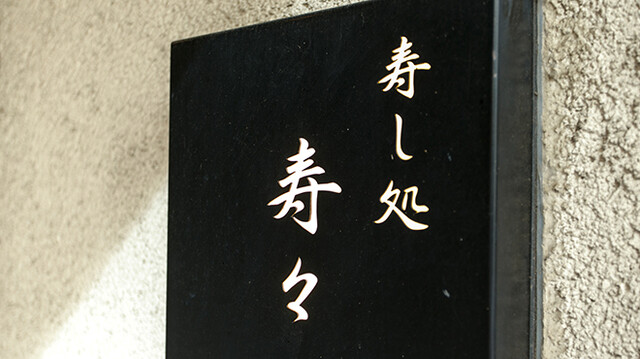 寿し処
寿々